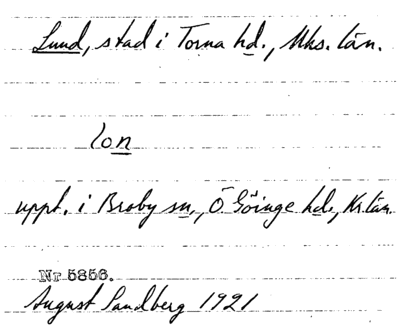 Lund, stad i Torna hd., Mhs. län.
lon
uppt. i Broby sn., Ö. Göinge hd., Kr. län
Nr 5856.
August Sandberg 1921